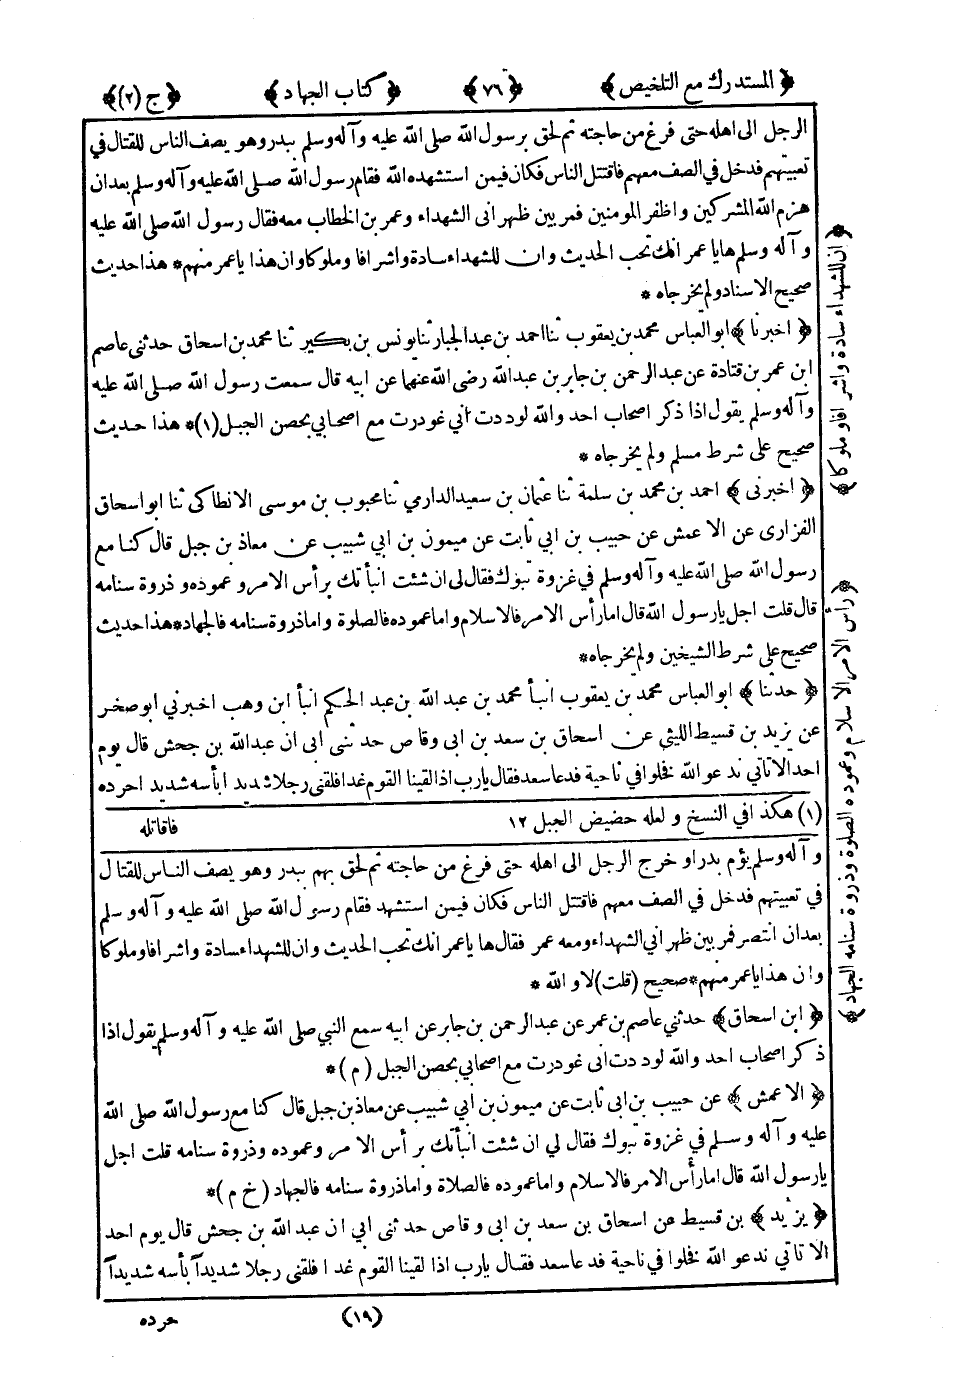 ﴿ المستدرك مع التلخيص ﴾ ﴿ ٧٦ ﴾ ﴿ كتاب الجهاد ﴾ ﴿ ج (٢) ﴾
الرجل الى اهله حتى فرغ من حاجته ثم لحق برسول الله صلى الله عليه وآله وسلم ببدر وهو يصف الناس للقتال في
تعبيتهم فدخل في الصف معهم فاقتتل الناس فكان فيمن استشهده الله فقام رسول الله صلى الله عليه وآله وسلم بعد ان
هزم الله المشركين واظفر المومنين فمر بين ظهراني الشهداء وعمر بن الخطاب معه فقال رسول الله صلى الله عليه
وآله وسلم ها يا عمر انك تحب الحديث وان للشهداء سادة واشرافا وملوكا وان هذا يا عمر منهم * هذا حديث
صحيح الاسناد ولم يخرجاه *
﴿ اخبرنا ﴾ ابو العباس محمد بن يعقوب ثنا احمد بن عبد الجبار ثنا يونس بن بكير ثنا محمد بن اسحاق حدثنى عاصم
ابن عمر بن قتادة عن عبد الرحمن بن جابر بن عبد الله رضى الله عنهما عن ابيه قال سمعت رسول الله صلى الله عليه
وآله وسلم يقول اذا ذكر اصحاب احد والله لوددت أني غودرت مع اصحابي بحصن الجبل (١) * هذا حديث
صحيح على شرط مسلم ولم يخرجاه *
﴿ اخبرنى ﴾ احمد بن محمد بن سلمة ثنا عثمان بن سعيد الدارمي ثنا محبوب بن موسى الانطاكى ثنا ابو اسحاق
الفزارى عن الاعمش عن حبيب بن ابي ثابت عن ميمون بن ابي شبيب عن معاذ بن جبل قال كنا مع
رسول الله صلى الله عليه وآله وسلم في غزوة تبوك فقال لى ان شئت انبأتك برأس الامر وعموده وذروة سنامه
قال قلت اجل يارسول الله قال اما رأس الامر فالاسلام واما عموده فالصلوة واما ذروة سنامه فالجهاد * هذا حديث
صحيح على شرط الشيخين ولم يخرجاه *
﴿ حدثنا ﴾ ابو العباس محمد بن يعقوب انبأ محمد بن عبد الله بن عبد الحكم انبأ ابن وهب اخبرني ابو صخر
عن يزيد بن قسيط الليثي عن اسحاق بن سعد بن ابى وقاص حدثنى ابى ان عبد الله بن جحش قال يوم
احد الا تاتي ندعو الله فخلوا في ناحية فدعا سعد فقال يارب اذا لقينا القوم غدا فلقنى رجلا شديدا بأسه شديدا حرده
فاقاتله
(١) هكذا في النسخ و لعله حضيض الجبل ١٢
وآله وسلم يؤم بدرا و خرج الرجل الى اهله حتى فرغ من حاجته ثم لحق بهم ببدر وهو يصف الناس للقتال
في تعبيتهم فدخل في الصف معهم فاقتتل الناس فكان فيمن استشهد فقام رسول الله صلى الله عليه وآله وسلم
بعد ان انتصر فمر بين ظهراني الشهداء ومعه عمر فقال ها يا عمر انك تحب الحديث وان للشهداء سادة واشرافا وملوكا
وان هذا يا عمر منهم * صحيح (قلت) لا والله *
﴿ ابن اسحاق ﴾ حدثني عاصم بن عمر عن عبد الرحمن بن جابر عن ابيه سمع النبي صلى الله عليه وآله وسلم يقول اذا
ذكر اصحاب احد والله لوددت انى غودرت مع اصحابي بحصن الجبل (م) *
﴿ الاعمش ﴾ عن حبيب بن ابى ثابت عن ميمون بن ابي شبيب عن معاذ بن جبل قال كنا مع رسول الله صلى الله
عليه وآله وسلم في غزوة تبوك فقال لي ان شئت انبأتك برأس الامر وعموده وذروة سنامه قلت اجل
يارسول الله قال اما رأس الامر فالاسلام واما عموده فالصلاة واما ذروة سنامه فالجهاد (خ م) *
﴿ يزيد ﴾ بن قسيط عن اسحاق بن سعد بن ابى وقاص حدثنى ابي ان عبد الله بن جحش قال يوم احد
الا تاتي ندعو الله فخلوا في ناحية فدعا سعد فقال يارب اذا لقينا القوم غدا فلقنى رجلا شديداً بأسه شديداً
حرده
(١٩)
﴿ ان للشهداء سادة واشرافا وملوكا ﴾
﴿ رأس الامر الاسلام وعموده الصلوة وذروة سنامه الجهاد ﴾